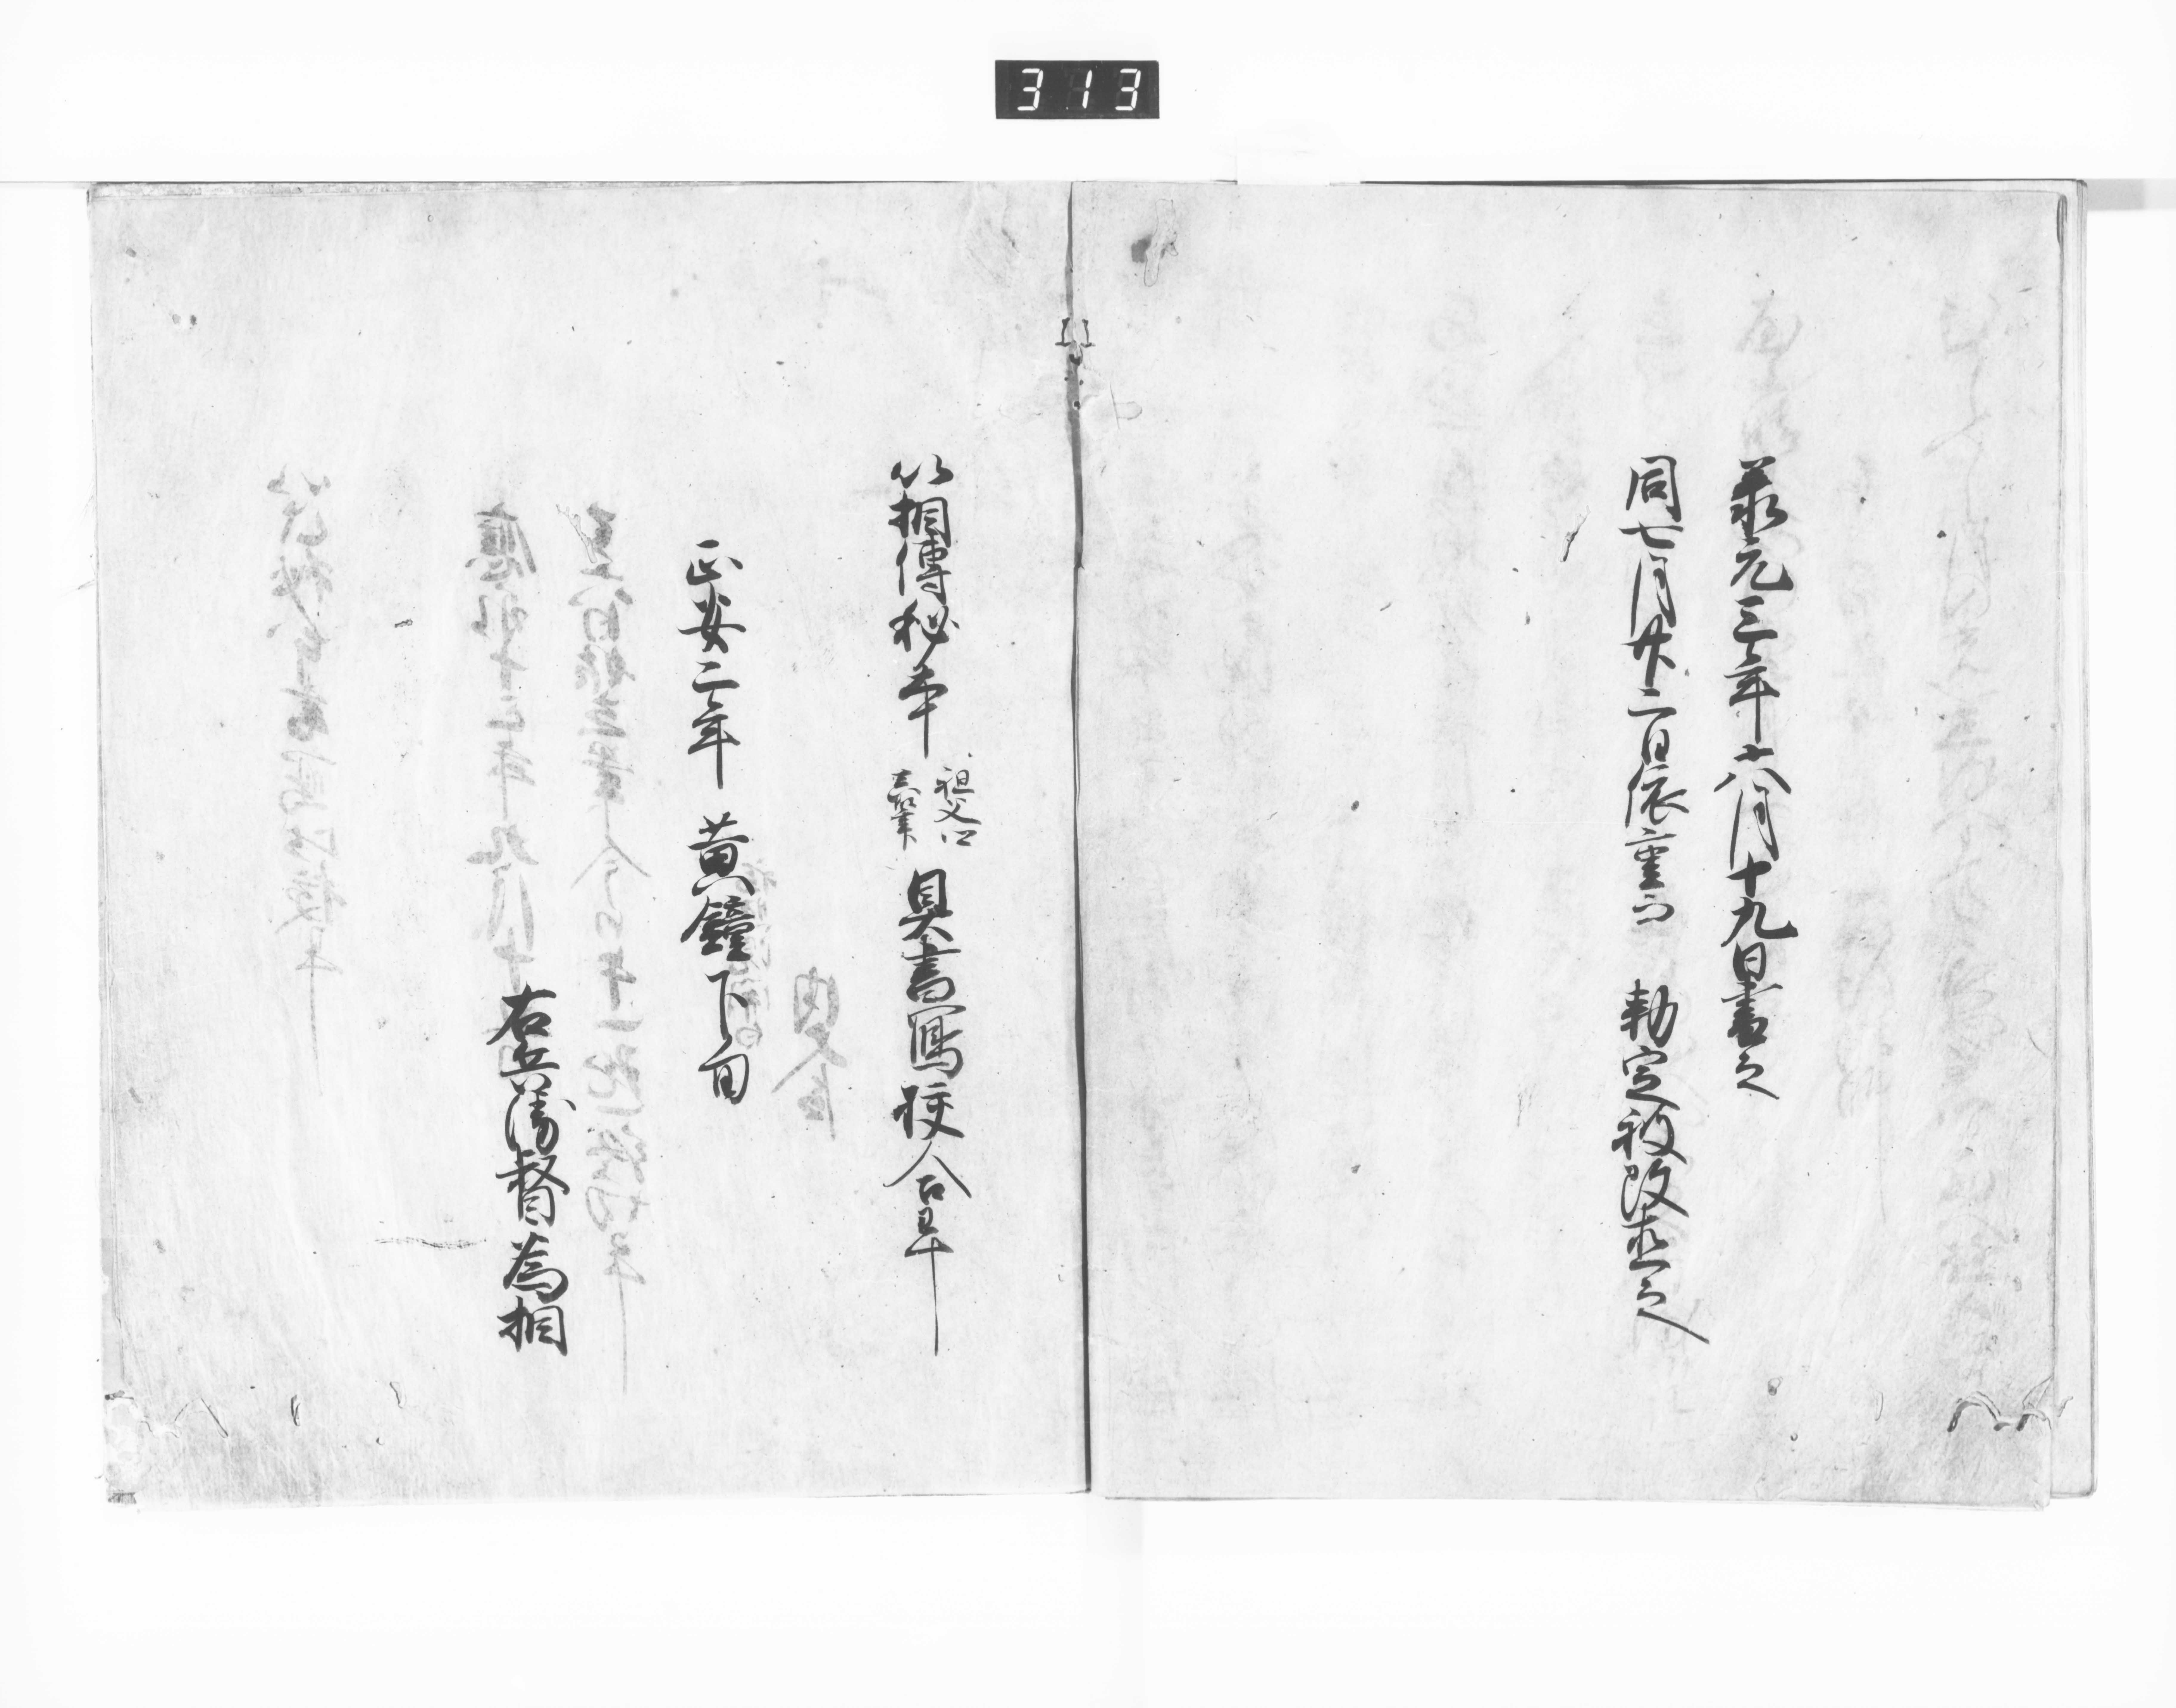 313
承元三年六月十九日書之
同七月廿二日依重而 勅定被改直之
以相傳秘本 祖父卿
真筆 具書寫校合畢
正安二年 黄鐘下旬
右兵衛督為相